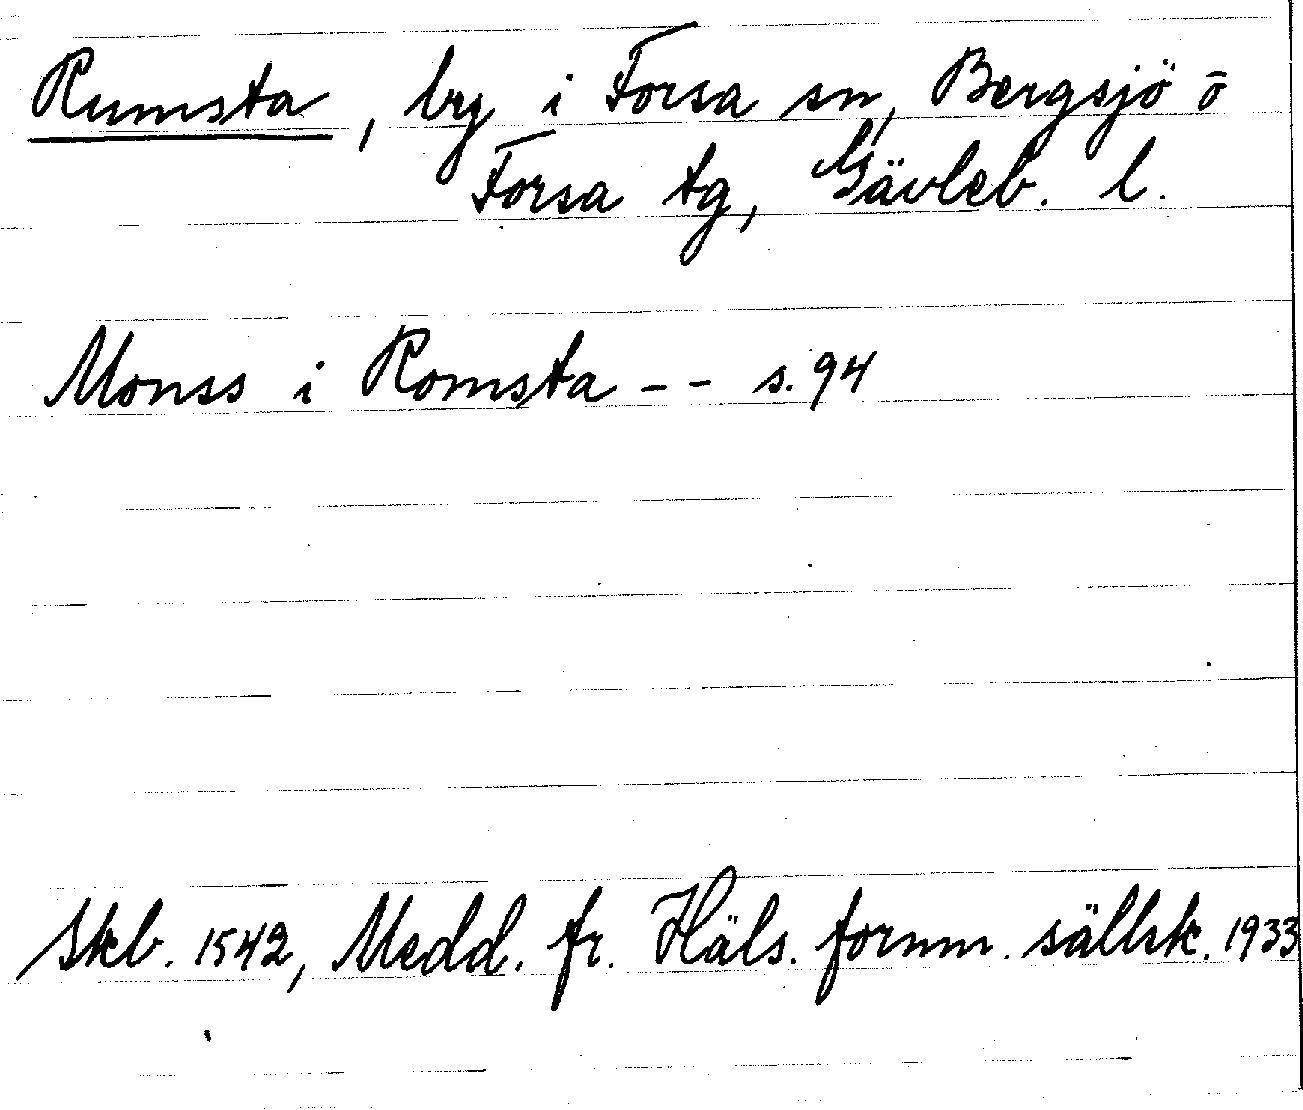 Rumsta, by i Forsa sn, Bergsjö o
Forsa tg, Gävleb. l.
Monss i Romsta - - s. 94
Skb. 1542, Medd. fr. Häls. fornm. sällsk. 1933